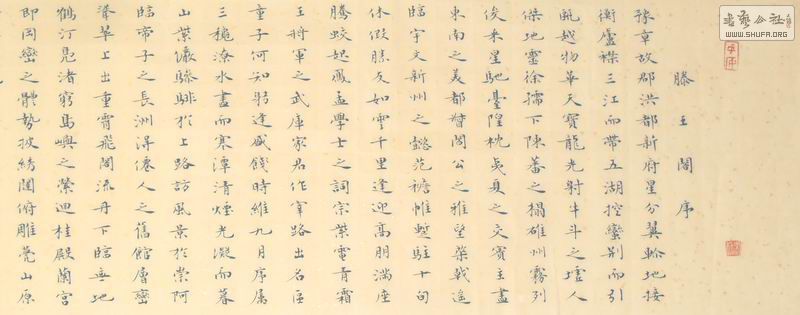 滕王閣序
豫章故郡洪都新府星分翼軫地接
衡廬襟三江而帶五湖控蠻荆而引
甌越物華天寶龍光射牛斗之墟人
傑地靈徐孺下陳蕃之榻雄州霧列
俊采星馳臺隍枕夷夏之交賓主盡
東南之美都督閻公之雅望棨戟遙
臨宇文新州之懿范襜帷暫駐十旬
休假勝友如雲千里逢迎高朋滿座
騰蛟起鳳孟學士之詞宗紫電青霜
王將軍之武庫家君作宰路出名區
童子何知躬逢盛餞時維九月序屬
三穐潦水盡而寒潭清煙光凝而暮
山紫儼驂騑於上路訪風景於崇阿
臨帝子之長洲得僊人之舊館層巒
聳翠上出重霄飛閣流丹下臨無地
鶴汀鳧渚窮島嶼之縈迴桂殿蘭宮
即岡巒之體勢披繡闥俯雕甍山原
WWW.SHUFA.ORG